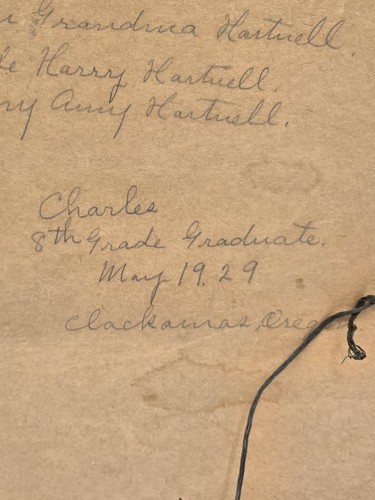 Grandma Hartwell.
Harry Hartwell.
Amy Hartwell.
Charles
8th Grade Graduate.
May 19.29
Clackamas, Ore